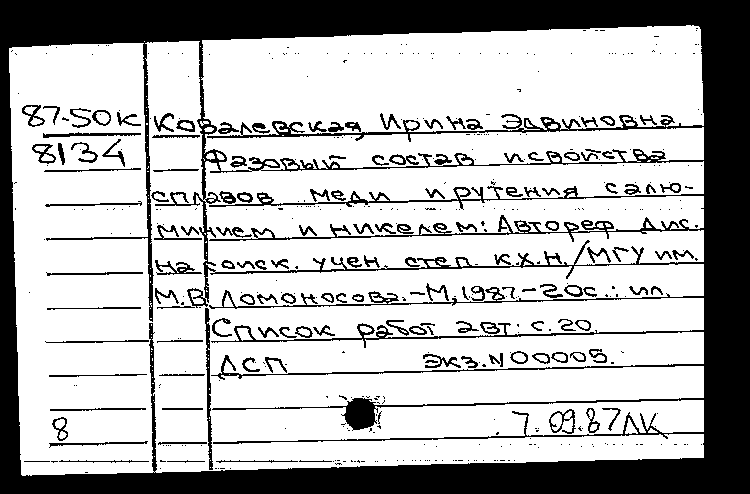 87-50к Ковалевская, Ирина Эдвиновна.
8134 Фазовый состав и свойства
сплавов меди и рутения с алю-
минием и никелем: Автореф. дис.
на соиск. учен. степ. к.х.н. / МГУ им.
М.В. Ломоносова. - М., 1987. - 20с.: ил.
Список работ авт.: с. 20.
ДСП экз. N 00005.
8 7.09.87 ЛК